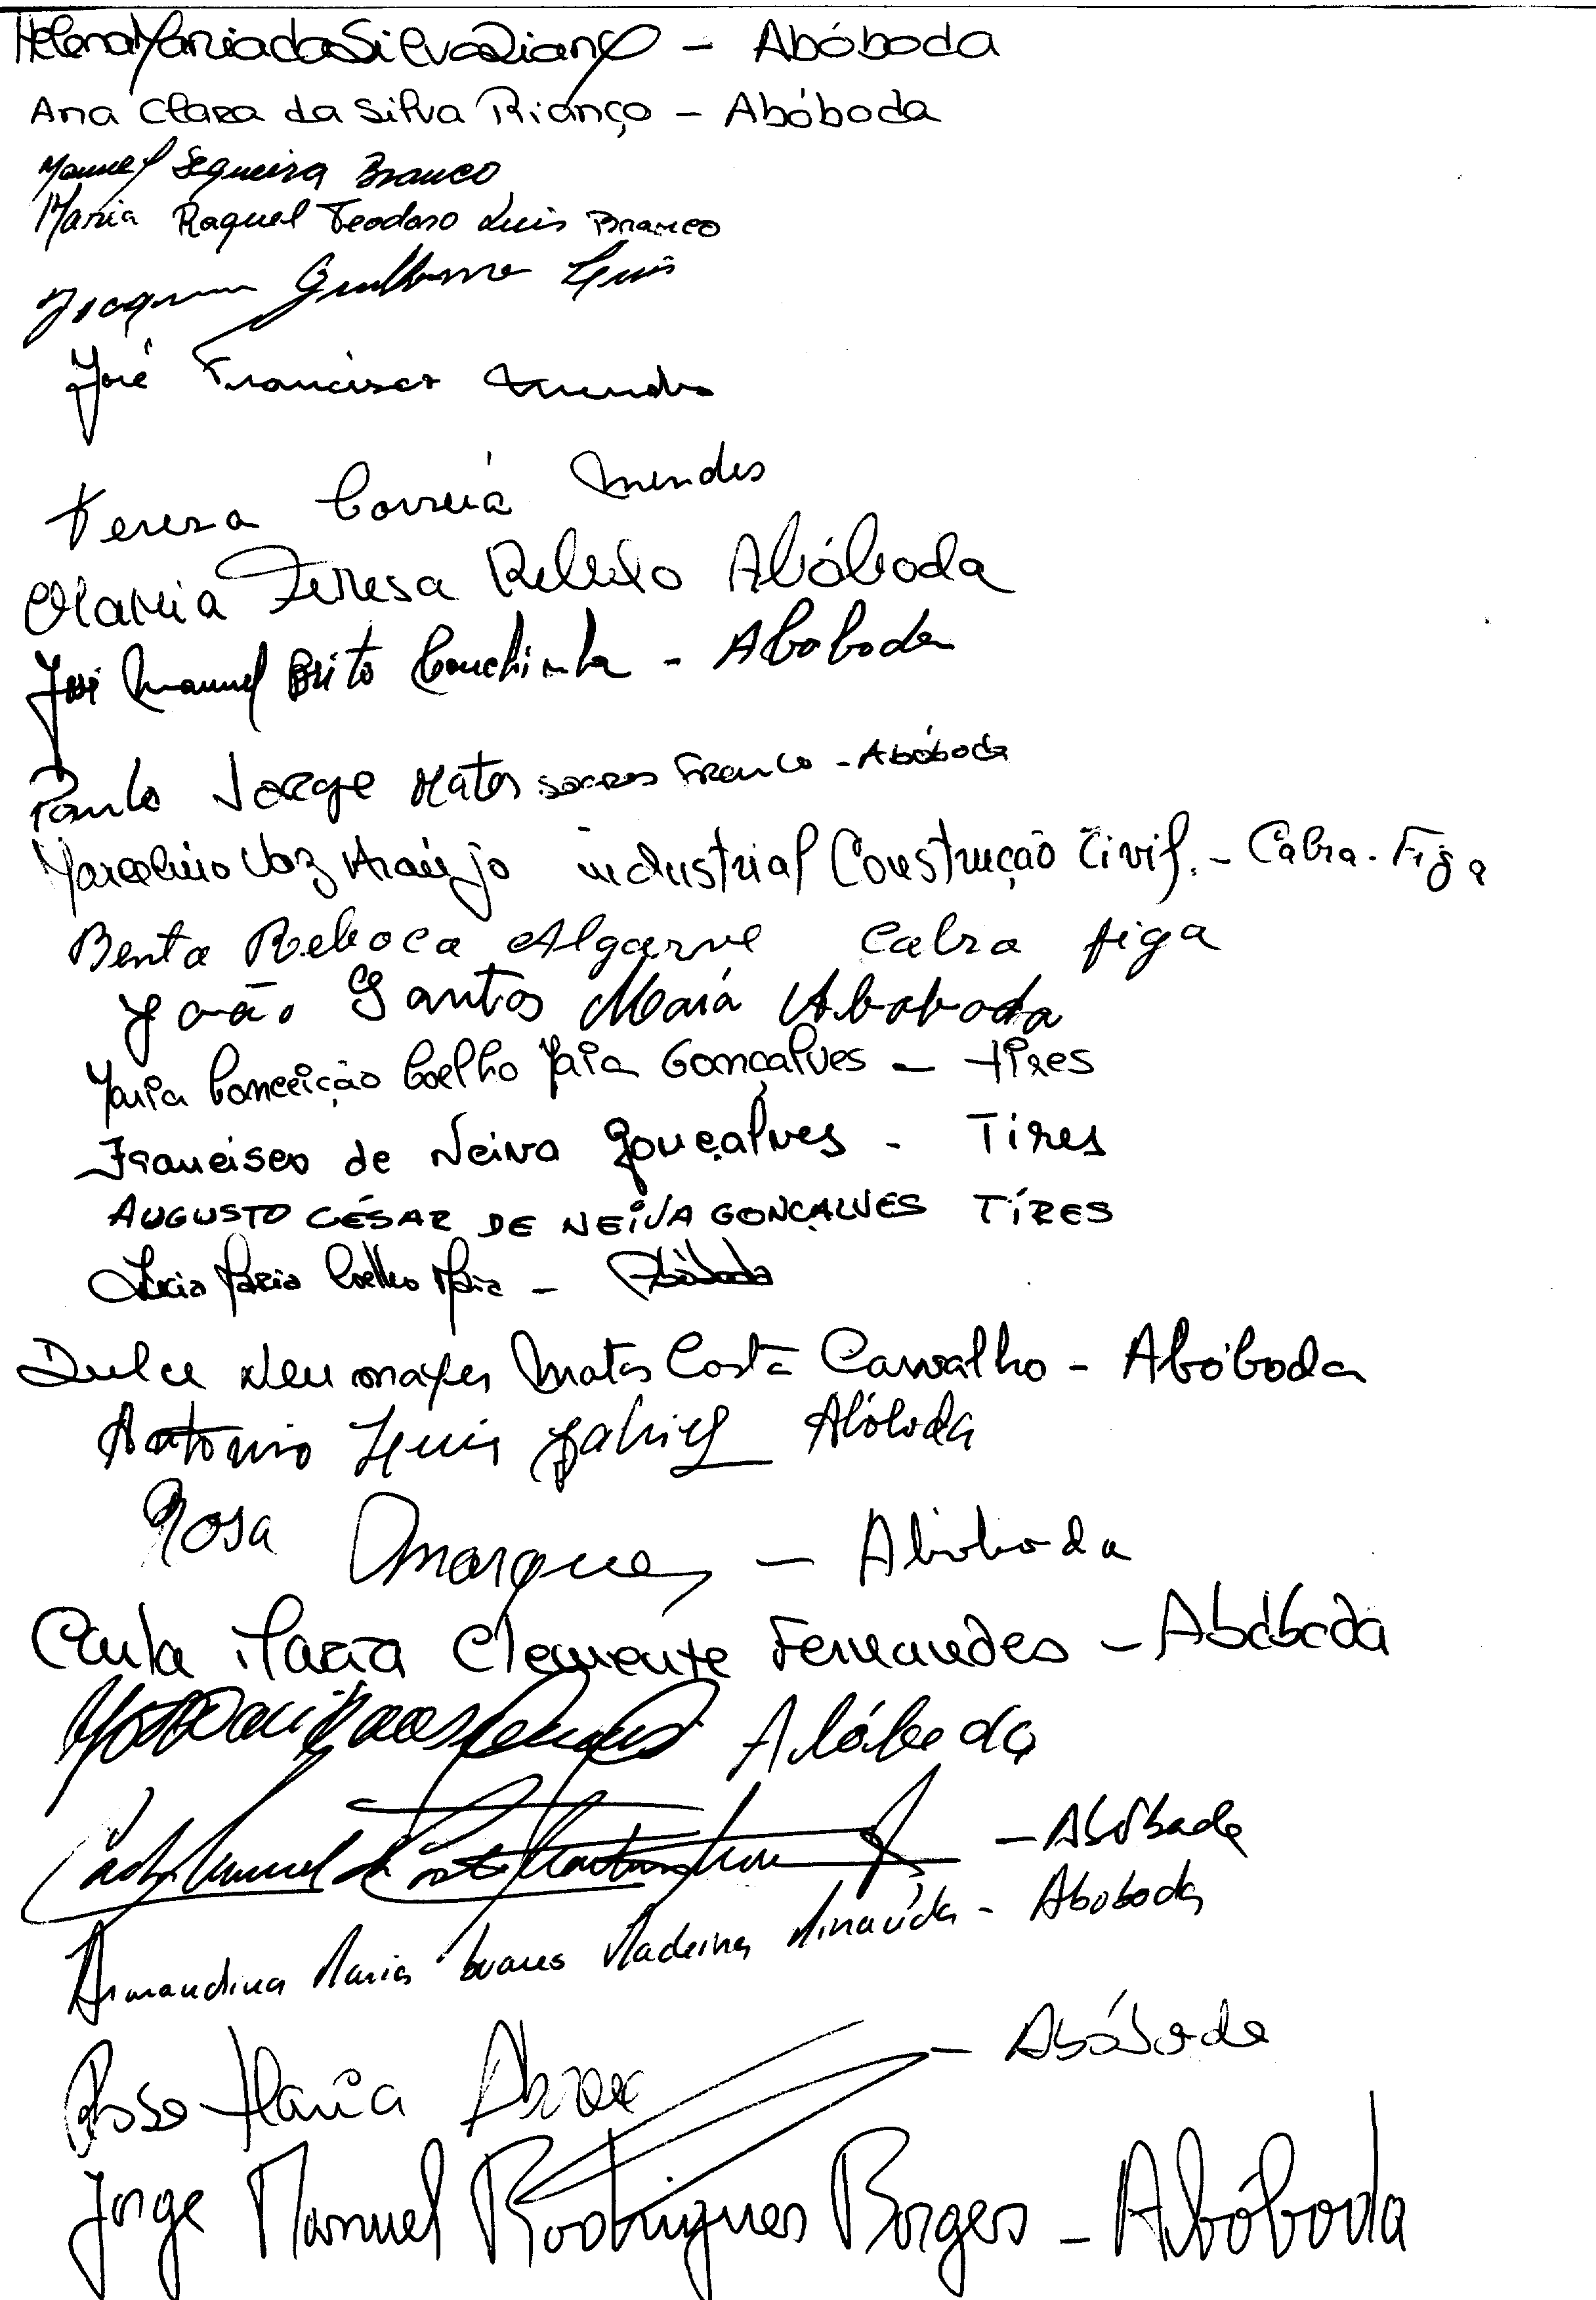 Helena Maria da Silva Rianço - Abóboda
Ana Clara da Silva Rianço - Abóboda
Manuel Sequeira Branco
Maria Raquel Teodoro Luis Branco
Joaquim Guilherme Luis
José Francisco Mendes
Teresa Correia Mendes
Maria Teresa Rebelo Abóboda
José Manuel Brito Conchinha - Aboboda
Paulo Jorge Matos Soares Franco - Abóboda
Marcolino Vaz Araújo industrial Construção Civil. - Cabra-Figa
Benta Reboca Algarve Cabra figa
João Santos Maia Aboboda
Maria Conceição Coelho Maia Gonçalves - Tires
Francisco de Neiva Gonçalves - Tires
AUGUSTO CÉSAR DE NEIVA GONÇALVES TIRES
Lucia Maria Coelho Maia - Abóboda
Dulce Matos Costa Carvalho - Abóboda
Antonio Luis Gabriel Abóboda
Rosa Marques - Abóboda
Carla Maria Clemente Fernandes - Abóboda
Abóboda
Manuel da Costa - Abóbada
Armandina Maria Soares Madeira - Aboboda
Rosa Maria - Abóboda
Jorge Manuel Rodrigues Borges - Abóboda